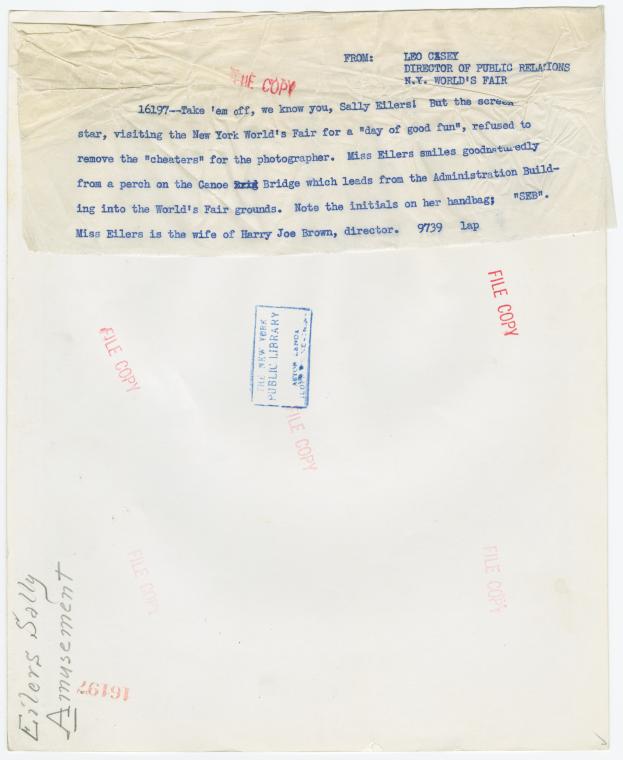 FROM: LEO CASEY
DIRECTOR OF PUBLIC RELATIONS
N.Y. WORLD'S FAIR
FILE COPY
16197--Take 'em off, we know you, Sally Eilers! But the screen
star, visiting the New York World's Fair for a "day of good fun", refused to
remove the "cheaters" for the photographer. Miss Eilers smiles goodnaturedly
from a perch on the Canoe Brig Bridge which leads from the Administration Build-
ing into the World's Fair grounds. Note the initials on her handbag; "SEB".
Miss Eilers is the wife of Harry Joe Brown, director. 9739 lap
FILE COPY
FILE COPY
THE NEW YORK
PUBLIC LIBRARY
ASTOR LENOX
FILE COPY
FILE COPY
FILE COPY
Eilers Sally
Amusement
16197